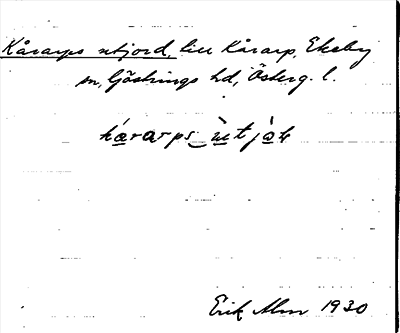 Kårarps utjord, till Kårarp, Ekeby
sn, Göstrings hd, Österg. l.
kárarps_ùtjàɷ
Erik Alm 1930